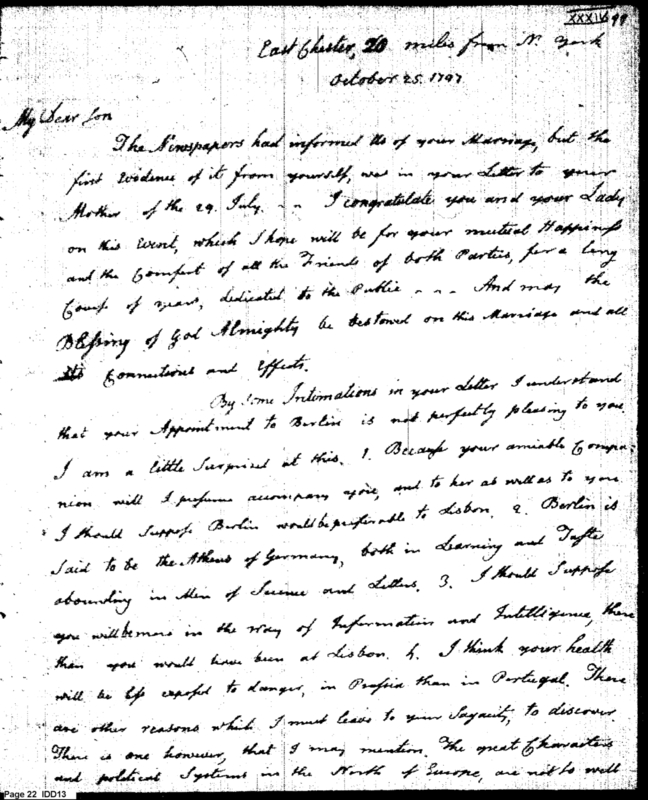 XXXIV 99
East Chester, 20 miles from N. York
October 25. 1797
My Dear Son
The Newspapers had informed Us of your Marriage, but the
first Evidence of it from yourself, was in your Letter to your
Mother of the 29. July. - - I congratulate you and your Lady
on this Event, which I hope will be for your mutual Happiness
and the Comfort of all the Friends of both Parties, for a long
Course of years, dedicated to the Public - - - And may the
Blessing of God Almighty be bestowed on this Marriage and all
its Connections and Effects.
By some Intimations in your Letter I understand
that your Appointment to Berlin is not perfectly pleasing to you.
I am a little Surprised at this. 1. Because your amiable Compa-
nion will I presume accompany you, and to her as well as to you
I should Suppose Berlin would be preferable to Lisbon. 2. Berlin is
Said to be the Athens of Germany, both in Learning and Taste
abounding in Men of Science and Letters. 3. I should Suppose
you will be more in the Way of Information and Intelligence, there
than you would have been at Lisbon. 4. I think your health
will be less exposed to danger, in Prussia than in Portugal. There
are other reasons which I must leave to your Sagacity, to discover
There is one however, that I may mention. The great Characters
and political Systems in the North of Europe, are not so well
Page 22 IDD13